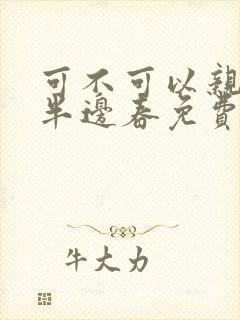 可不可以親
半邊春免費
牛大力